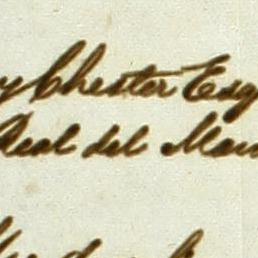 y Chester Esq
Real del Mon